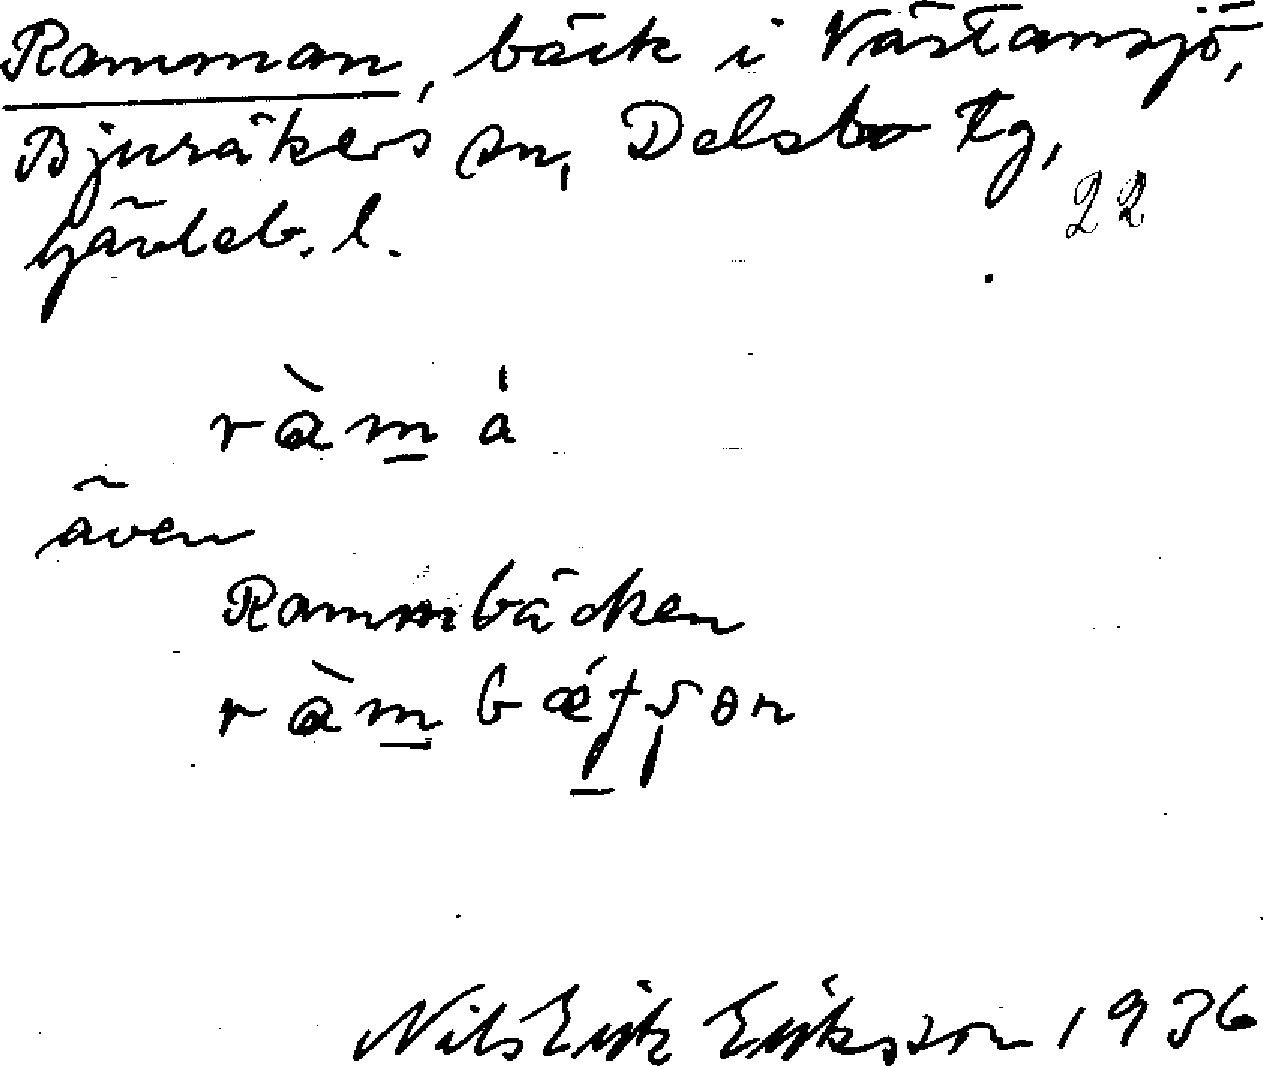 Ramman, bäck i Västansjö,
Bjuråkers sn, Delsbo tg,
Gävleb. l. 22
ràm̲ á
även
Rammbäcken
ràm̲ bæ̀
Nils Erik Eriksson 1936